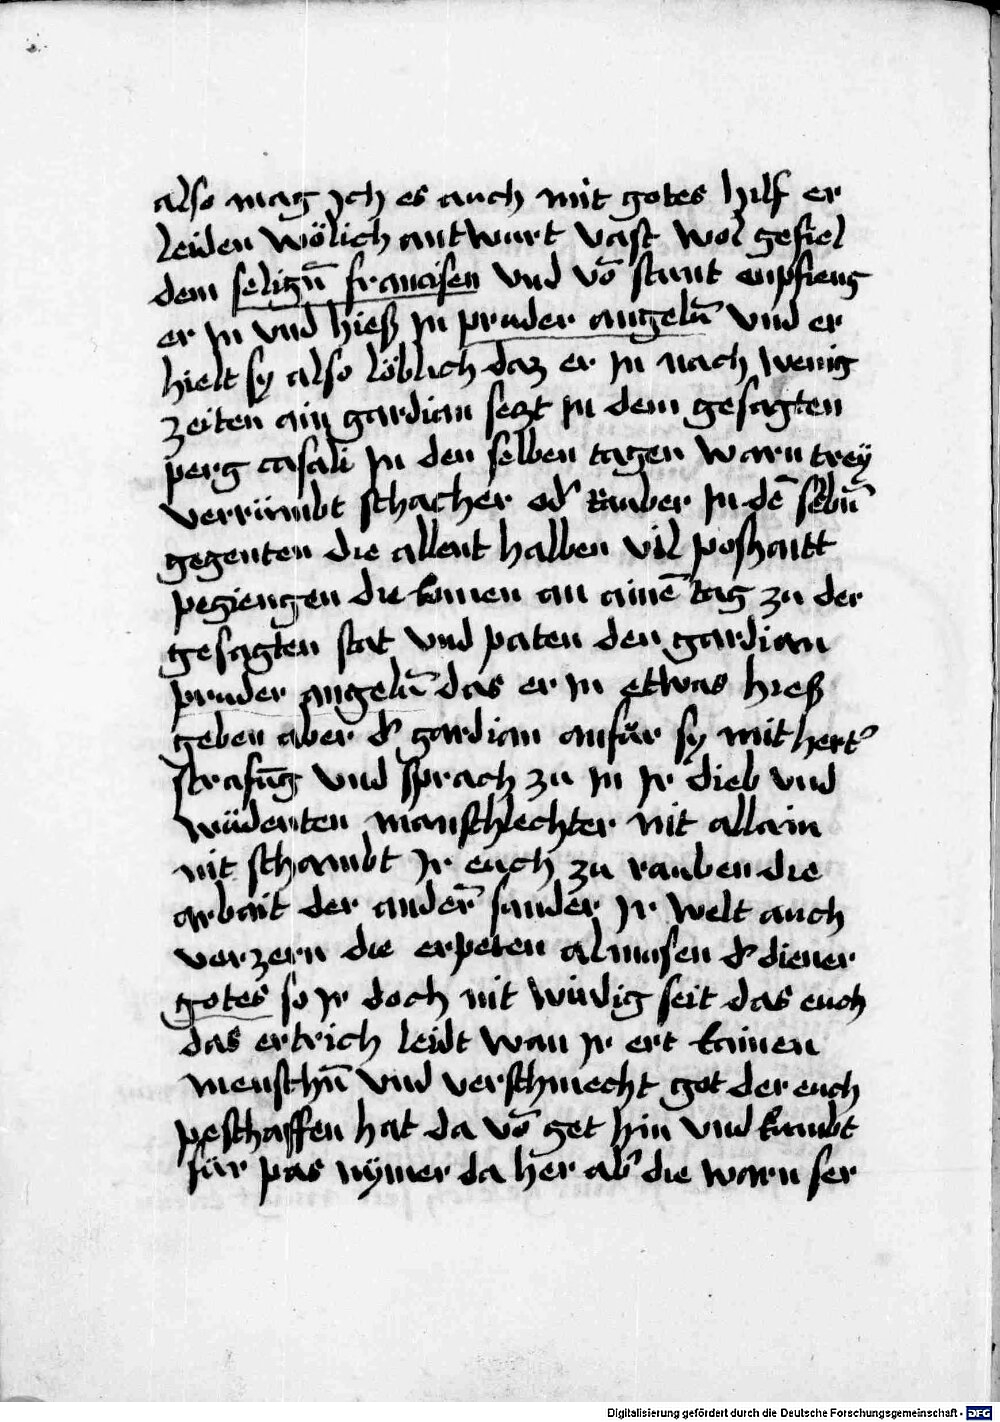 also mag jch es auch mit gotes hilf er
leiden wölich antwurt vast wol gefiel
dem seligñ francisen vnd võ stunt enpfieng
er jn vnd hieß jn pruder angelũ vnd er
hielt sy also löblich daz er jn nach wenig
zeiten ain gardian seczt jn dem gesagten
perg casali jn den selben tagen warn trey
verrümbt schacher od' rauber jn dē selbñ
gegenten die allent halben vil poshaitt
pegiengen die komen an ainē tag zu der
gesagten stat vnd paten den gardian
pruder angelũ das er jn etwas hieß
geben aber d' gardian anfür sy mit hert'
strafũg vnd sprach zu jn jr dieb vnd
wüdenten manschlechter nit allain
nit schambt jr euch zu rauben die
arbait der anderñ sunder jr welt auch
verzern die erpeten almusen d' diener
gotes so jr doch nit wirdig seit das euch
das ertrich leidt wan jr ert kainen
menschñ vnd verschmecht got der euch
peschaffen hat da võ get hin vnd kumbt
für pas nÿmer da her ab' die warn ser
Digitalisierung gefördert durch die Deutsche Forschungsgemeinschaft - DFG